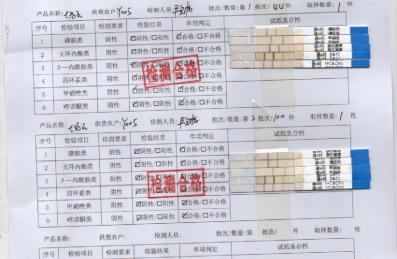 产品名称: 供货农户: Y005 检测人员: 批次/数量:第1批次/44件 取样数量:1枚
序号 检验项目 检测要求 检验结果 单项判定 试纸条存档
1 磺胺类 阴性 ☑阴性/☐阳性 ☑合格/☐不合格
2 大环内酯类 阴性 ☑阴性/☐阳性 ☑合格/☐不合格
3 β-内酰胺类 阴性 ☑阴性/☐阳性 ☑合格/☐不合格
4 四环素类 阴性 ☑阴性/☐阳性 ☑合格/☐不合格
5 甲硝唑类 阴性 ☑阴性/☐阳性 ☑合格/☐不合格
6 喹诺酮类 阴性 ☑阴性/☐阳性 ☑合格/☐不合格
检测合格
产品名称: 供货农户: Y005 检测人员: 批次/数量:第2批次/100件 取样数量:1枚
序号 检验项目 检测要求 检验结果 单项判定 试纸条存档
1 磺胺类 阴性 ☑阴性/☐阳性 ☑合格/☐不合格
2 大环内酯类 阴性 ☑阴性/☐阳性 ☑合格/☐不合格
3 β-内酰胺类 阴性 ☑阴性/☐阳性 ☑合格/☐不合格
4 四环素类 阴性 ☑阴性/☐阳性 ☑合格/☐不合格
5 甲硝唑类 阴性 ☑阴性/☐阳性 ☑合格/☐不合格
6 喹诺酮类 阴性 ☑阴性/☐阳性 ☑合格/☐不合格
检测合格
产品名称: 供货农户: 检测人员: 批次/数量:第 批次/ 件 取样数量: 枚
序号 检验项目 检测要求 检验结果 单项判定 试纸条存档